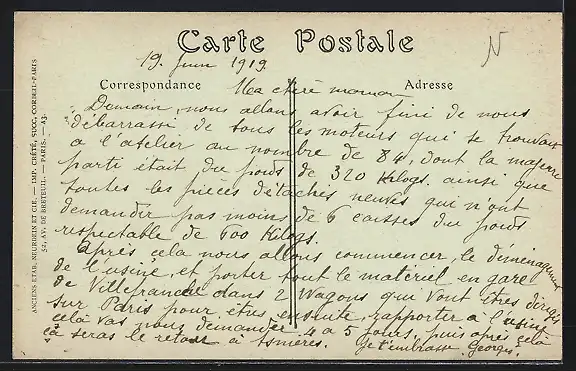 Carte Postale
19. Juin 1919
Correspondance
Adresse
Ma chère maman
Demain, nous allons avoir fini de nous
débarrassé de tous les moteurs qui se trouvait
a l'atelier au nombre de 84, dont la majeure
partie était du poids de 320 Kilogs. ainsi que
toutes les pieces détachés neuves qui n'ont
demander pas moins de 6 caisses du poids
respectable de 600 Kilogs.
Après cela nous allons commencer, le déménagement
de l'usine, et porter tout le matériel en gare
de Villefranche dans 2 Wagons qui vont êtres dirigés
sur Paris pour etres ensuite, rapporter à l'usine
cela vas nous demander 4 a 5 jours, puis après cela
ça seras le retour à Asnières. Je t'embrasse Georges.
N
ANCIENS ETAB. NEURDEIN ET CIE. — IMP. CRÉTÉ, SUCC. CORBEIL-PARIS
52, AV. DE BRETEUIL. — PARIS. — A3.